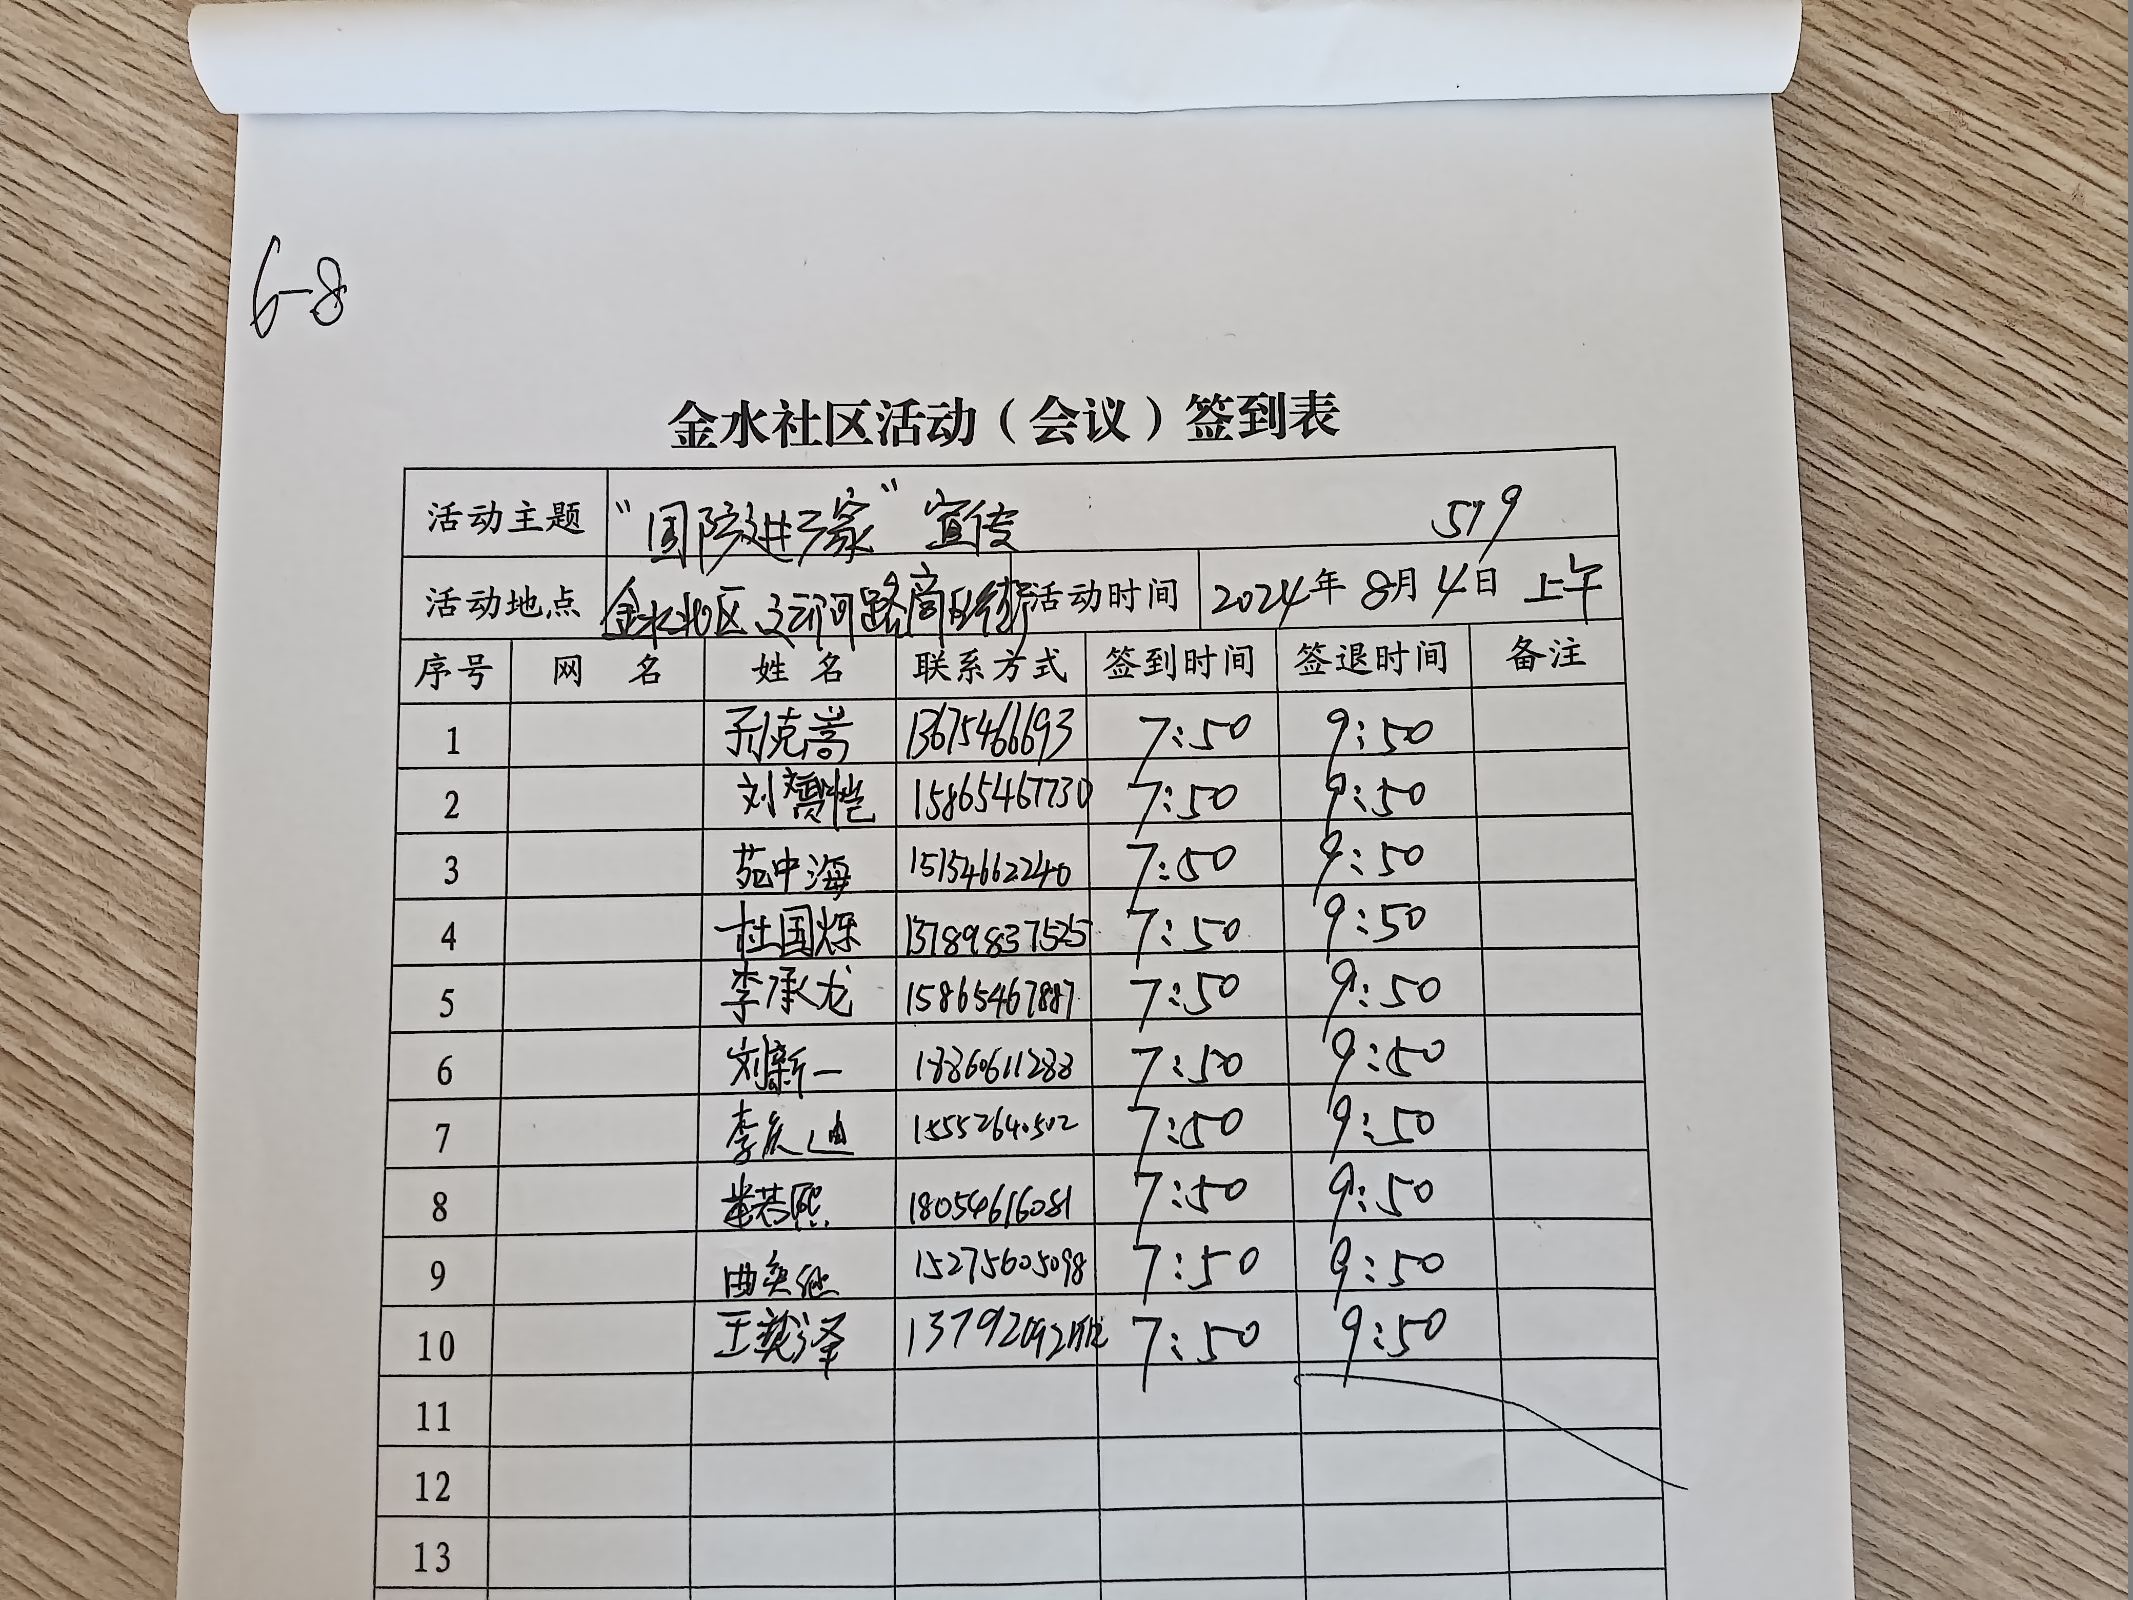 6-8
金水社区活动（会议）签到表
活动主题 “国防进万家”宣传 519
活动地点 金水社区 路商业街 活动时间 2024年 8月 4日 上午
序号 网 名 姓 名 联系方式 签到时间 签退时间 备注
1 孙克嵩 13675466693 7:50 9:50
2 刘赟恺 15865467730 7:50 9:50
3 苑中海 15154662240 7:50 9:50
4 杜国烁 13789837525 7:50 9:50
5 李承龙 15865467887 7:50 9:50
6 刘新一 18860611288 7:50 9:50
7 李庆迪 15552640502 7:50 9:50
8 若熙 18054616081 7:50 9:50
9 曲奕继 15275605098 7:50 9:50
10 王懿泽 7:50 9:50
11
12
13